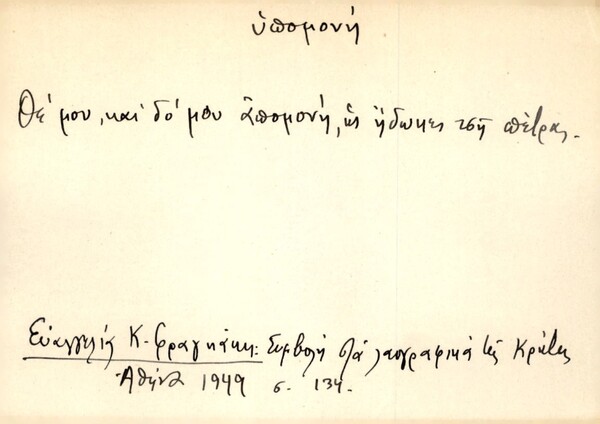 ὑπομονή
Θέ μου, καί δό μου ἀπομονή, ὡς ἤδωκες τσῆ πέτρας.
Εὐαγγελία Κ. Φραγκάκι: Συμβολή στά λαογραφικά τῆς Κρήτης
Ἀθήνα 1949 σ. 134.